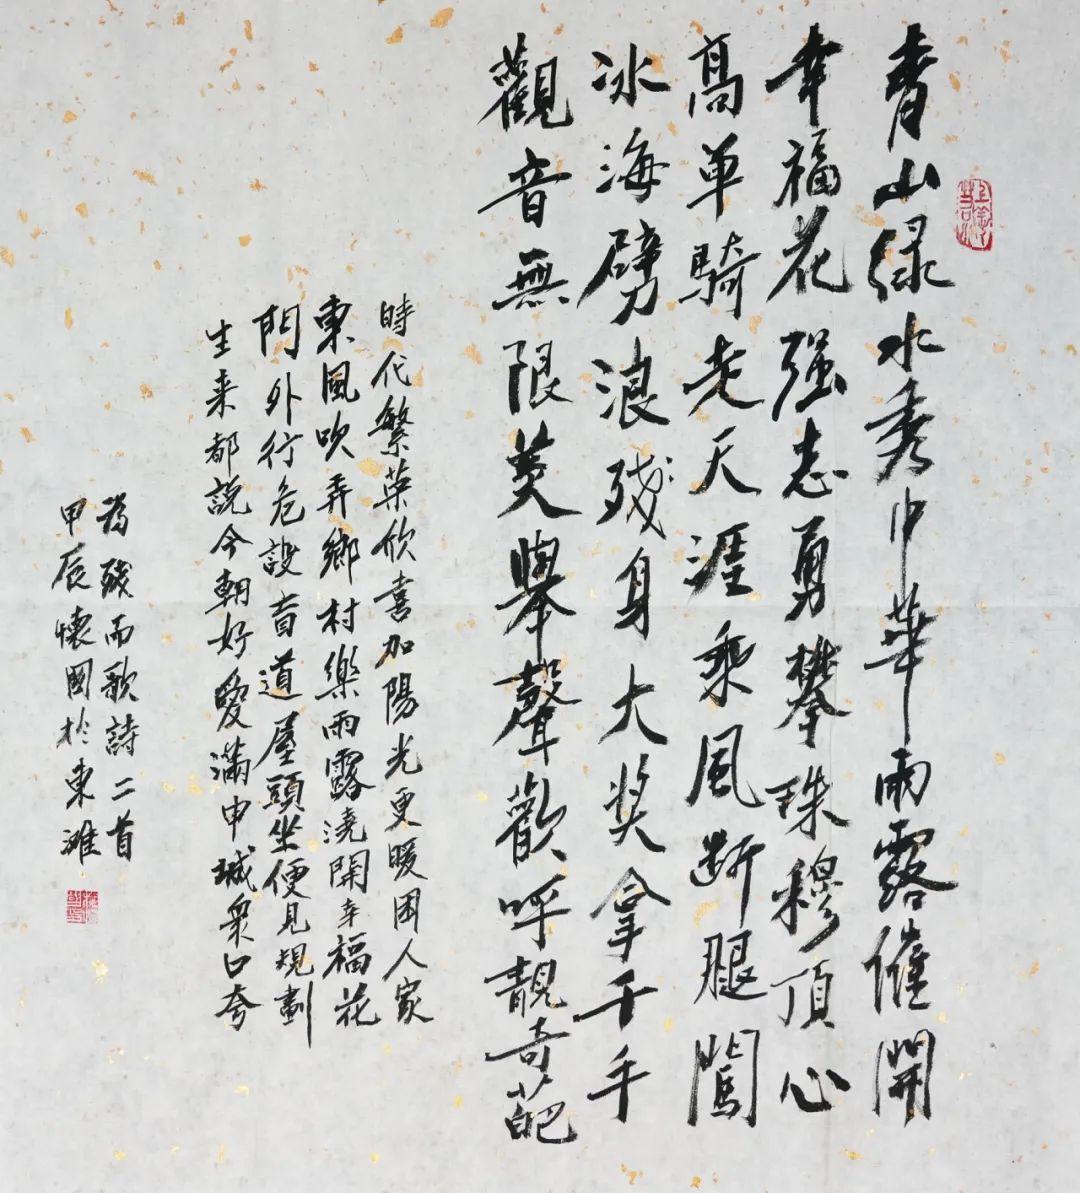 青山绿水秀中華雨露催開
幸福花强志勇攀珠穆頂心
高单騎走天涯乘風断腿闖
冰海劈浪残身大奖拿千手
觀音無限美舉聲歡呼靚奇葩
時代繁荣欣喜加陽光更暖困人家
東風吹弄鄉村樂雨露澆開幸福花
門外行危設盲道屋頭坐便見規劃
生来都説今朝好愛滿申城衆口夸
為残而歌詩二首
甲辰懷國於東滩